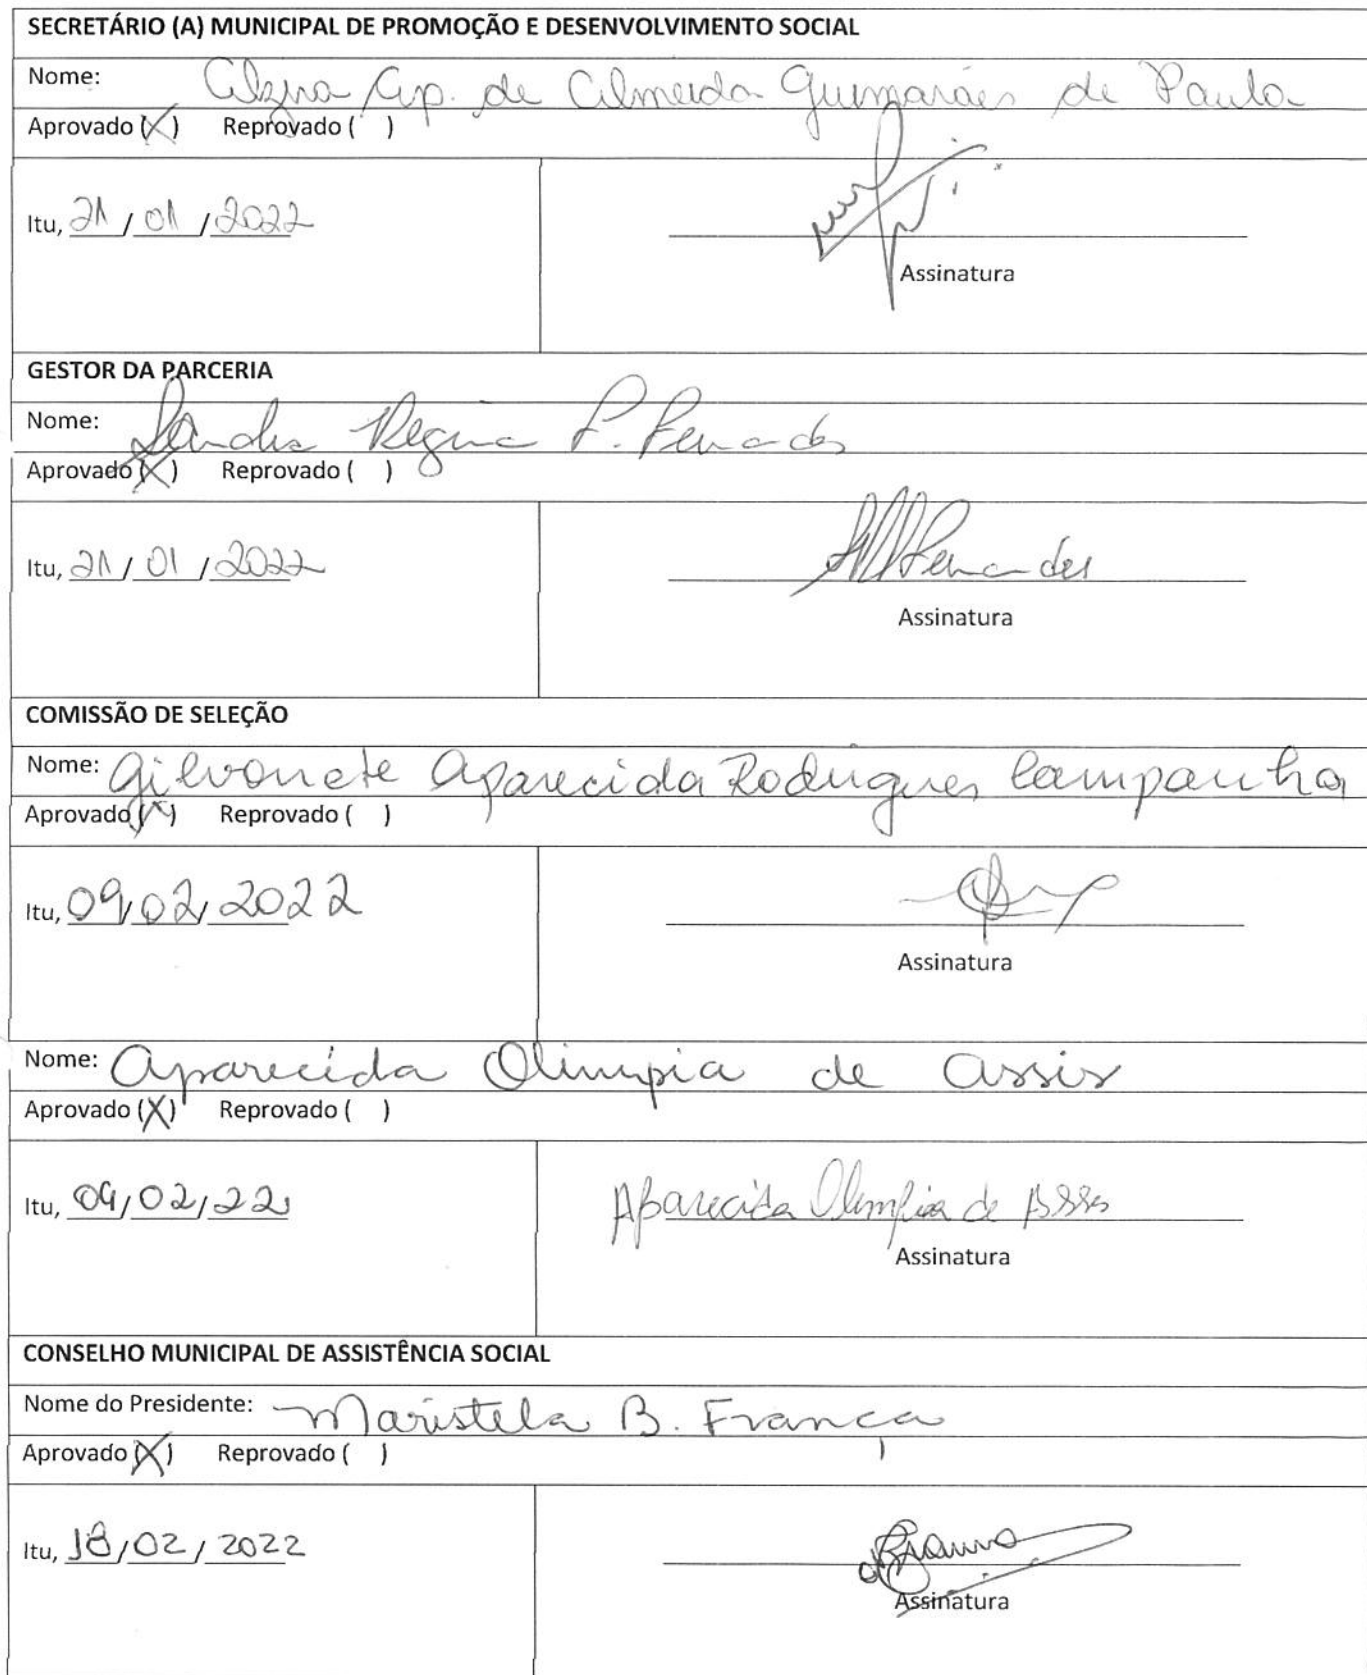 SECRETÁRIO (A) MUNICIPAL DE PROMOÇÃO E DESENVOLVIMENTO SOCIAL
Nome: Alzira Ap. de Almeida Guimarães de Paula
Aprovado (X) Reprovado ( )
Itu, 21/01/2022
Assinatura
GESTOR DA PARCERIA
Nome: Sandra Regina P. Fernandes
Aprovado (X) Reprovado ( )
Itu, 21/01/2022
Fernandes
Assinatura
COMISSÃO DE SELEÇÃO
Nome: Gilvonete Aparecida Rodrigues Campanha
Aprovado (X) Reprovado ( )
Itu, 09/02/2022
Assinatura
Nome: Aparecida Olimpia de Assis
Aprovado (X) Reprovado ( )
Itu, 09/02/22
Aparecida Olimpia de Assis
Assinatura
CONSELHO MUNICIPAL DE ASSISTÊNCIA SOCIAL
Nome do Presidente: Maristela B. França
Aprovado (X) Reprovado ( )
Itu, 18/02/2022
Assinatura